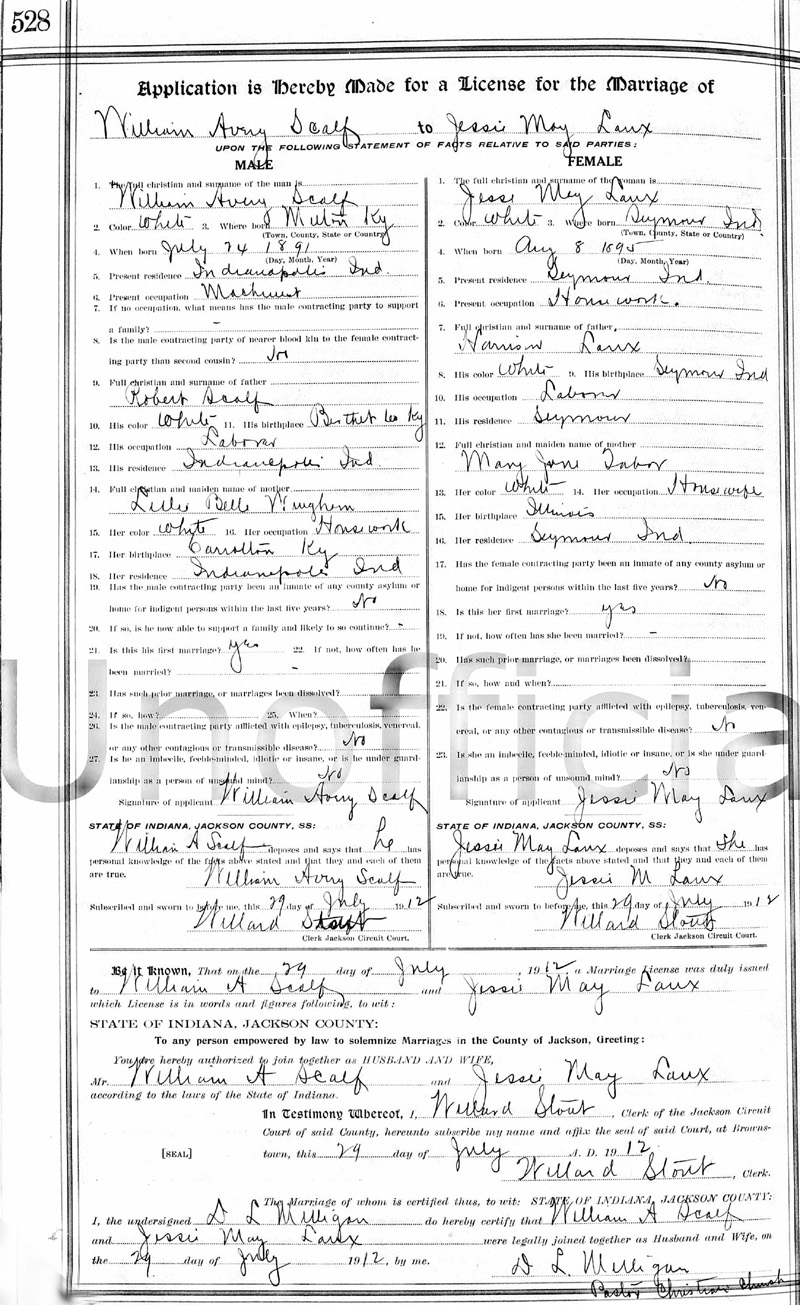 528
Application is Hereby Made for a License for the Marriage of
William Avery Scalf to Jessie May Laux
UPON THE FOLLOWING STATEMENT OF FACTS RELATIVE TO SAID PARTIES:
MALE
1. The full christian and surname of the man is
William Avery Scalf
2. Color White 3. Where born Milton Ky
(Town, County, State or Country)
4. When born July 24 1891
(Day, Month, Year)
5. Present residence Indianapolis Ind.
6. Present occupation Machinist
7. If no occupation, what means has the male contracting party to support
a family? -
8. Is the male contracting party of nearer blood kin to the female contract-
ing party than second cousin? No
9. Full christian and surname of father
Robert Scalf
10. His color White 11. His birthplace Ky
12. His occupation Laborer
13. His residence Indianapolis Ind.
14. Full christian and maiden name of mother
Lillie Belle
15. Her color White 16. Her occupation Housework
17. Her birthplace Carrollton Ky
18. Her residence Indianapolis Ind
19. Has the male contracting party been an inmate of any county asylum or
home for indigent persons within the last five years? No
20. If so, is he now able to support a family and likely to so continue? -
21. Is this his first marriage? yes 22. If not, how often has he
been married? -
23. Has such prior marriage, or marriages been dissolved?
24. If so, how? 25. When?
26. Is the male contracting party afflicted with epilepsy, tuberculosis, venereal,
or any other contagious or transmissible disease? No
27. Is he an imbecile, feeble-minded, idiotic or insane, or is he under guard-
ianship as a person of unsound mind? No
Signature of applicant William Avery Scalf
STATE OF INDIANA, JACKSON COUNTY, SS:
William A Scalf deposes and says that he has
personal knowledge of the facts above stated and that they and each of them
are true.
William Avery Scalf
Subscribed and sworn to before me, this 29 day of July 1912
Willard Stout
Clerk Jackson Circuit Court.
FEMALE
1. The full christian and surname of the woman is
Jesse May Laux
2. Color White 3. Where born Seymour Ind.
(Town, County, State or Country)
4. When born Aug 8 1895
(Day, Month, Year)
5. Present residence Seymour Ind.
6. Present occupation Housework.
7. Full christian and surname of father,
Harrison Laux
8. His color White 9. His birthplace Seymour Ind
10. His occupation Laborer
11. His residence Seymour
12. Full christian and maiden name of mother
Mary Jane Tabor
13. Her color White 14. Her occupation Housewife
15. Her birthplace Illinois
16. Her residence Seymour Ind.
17. Has the female contracting party been an inmate of any county asylum or
home for indigent persons within the last five years? No
18. Is this her first marriage? yes
19. If not, how often has she been married? -
20. Has such prior marriage, or marriages been dissolved?
21. If so, how and when?
22. Is the female contracting party afflicted with epilepsy, tuberculosis, ven-
ereal, or any other contagious or transmissible disease? No
23. Is she an imbecile, feeble-minded, idiotic or insane, or is she under guard-
ianship as a person of unsound mind? No
Signature of applicant Jessie May Laux
STATE OF INDIANA, JACKSON COUNTY, SS:
Jessie May Laux deposes and says that She has
personal knowledge of the facts above stated and that they and each of them
are true.
Jessie M Laux
Subscribed and sworn to before me, this 29 day of July 1912
Willard Stout
Clerk Jackson Circuit Court.
Unofficia
Be it Known, That on the 29 day of July, 1912 a Marriage License was duly issued
to William A Scalf and Jessie May Laux
which License is in words and figures following, to wit:
STATE OF INDIANA, JACKSON COUNTY:
To any person empowered by law to solemnize Marriages in the County of Jackson, Greeting:
You are hereby authorized to join together as HUSBAND AND WIFE,
Mr. William A Scalf and Jessie May Laux
according to the laws of the State of Indiana.
In Testimony Whereof, I, Willard Stout, Clerk of the Jackson Circuit
Court of said County, hereunto subscribe my name and affix the seal of said Court, at Browns-
[SEAL] town, this 29 day of July A. D. 1912.
Willard Stout, Clerk.
The Marriage of whom is certified thus, to wit: STATE OF INDIANA, JACKSON COUNTY:
I, the undersigned D L Milligan do hereby certify that William A Scalf
and Jessie May Laux were legally joined together as Husband and Wife, on
the 29 day of July 1912, by me.
D L. Milligan
Pastor Christian Church